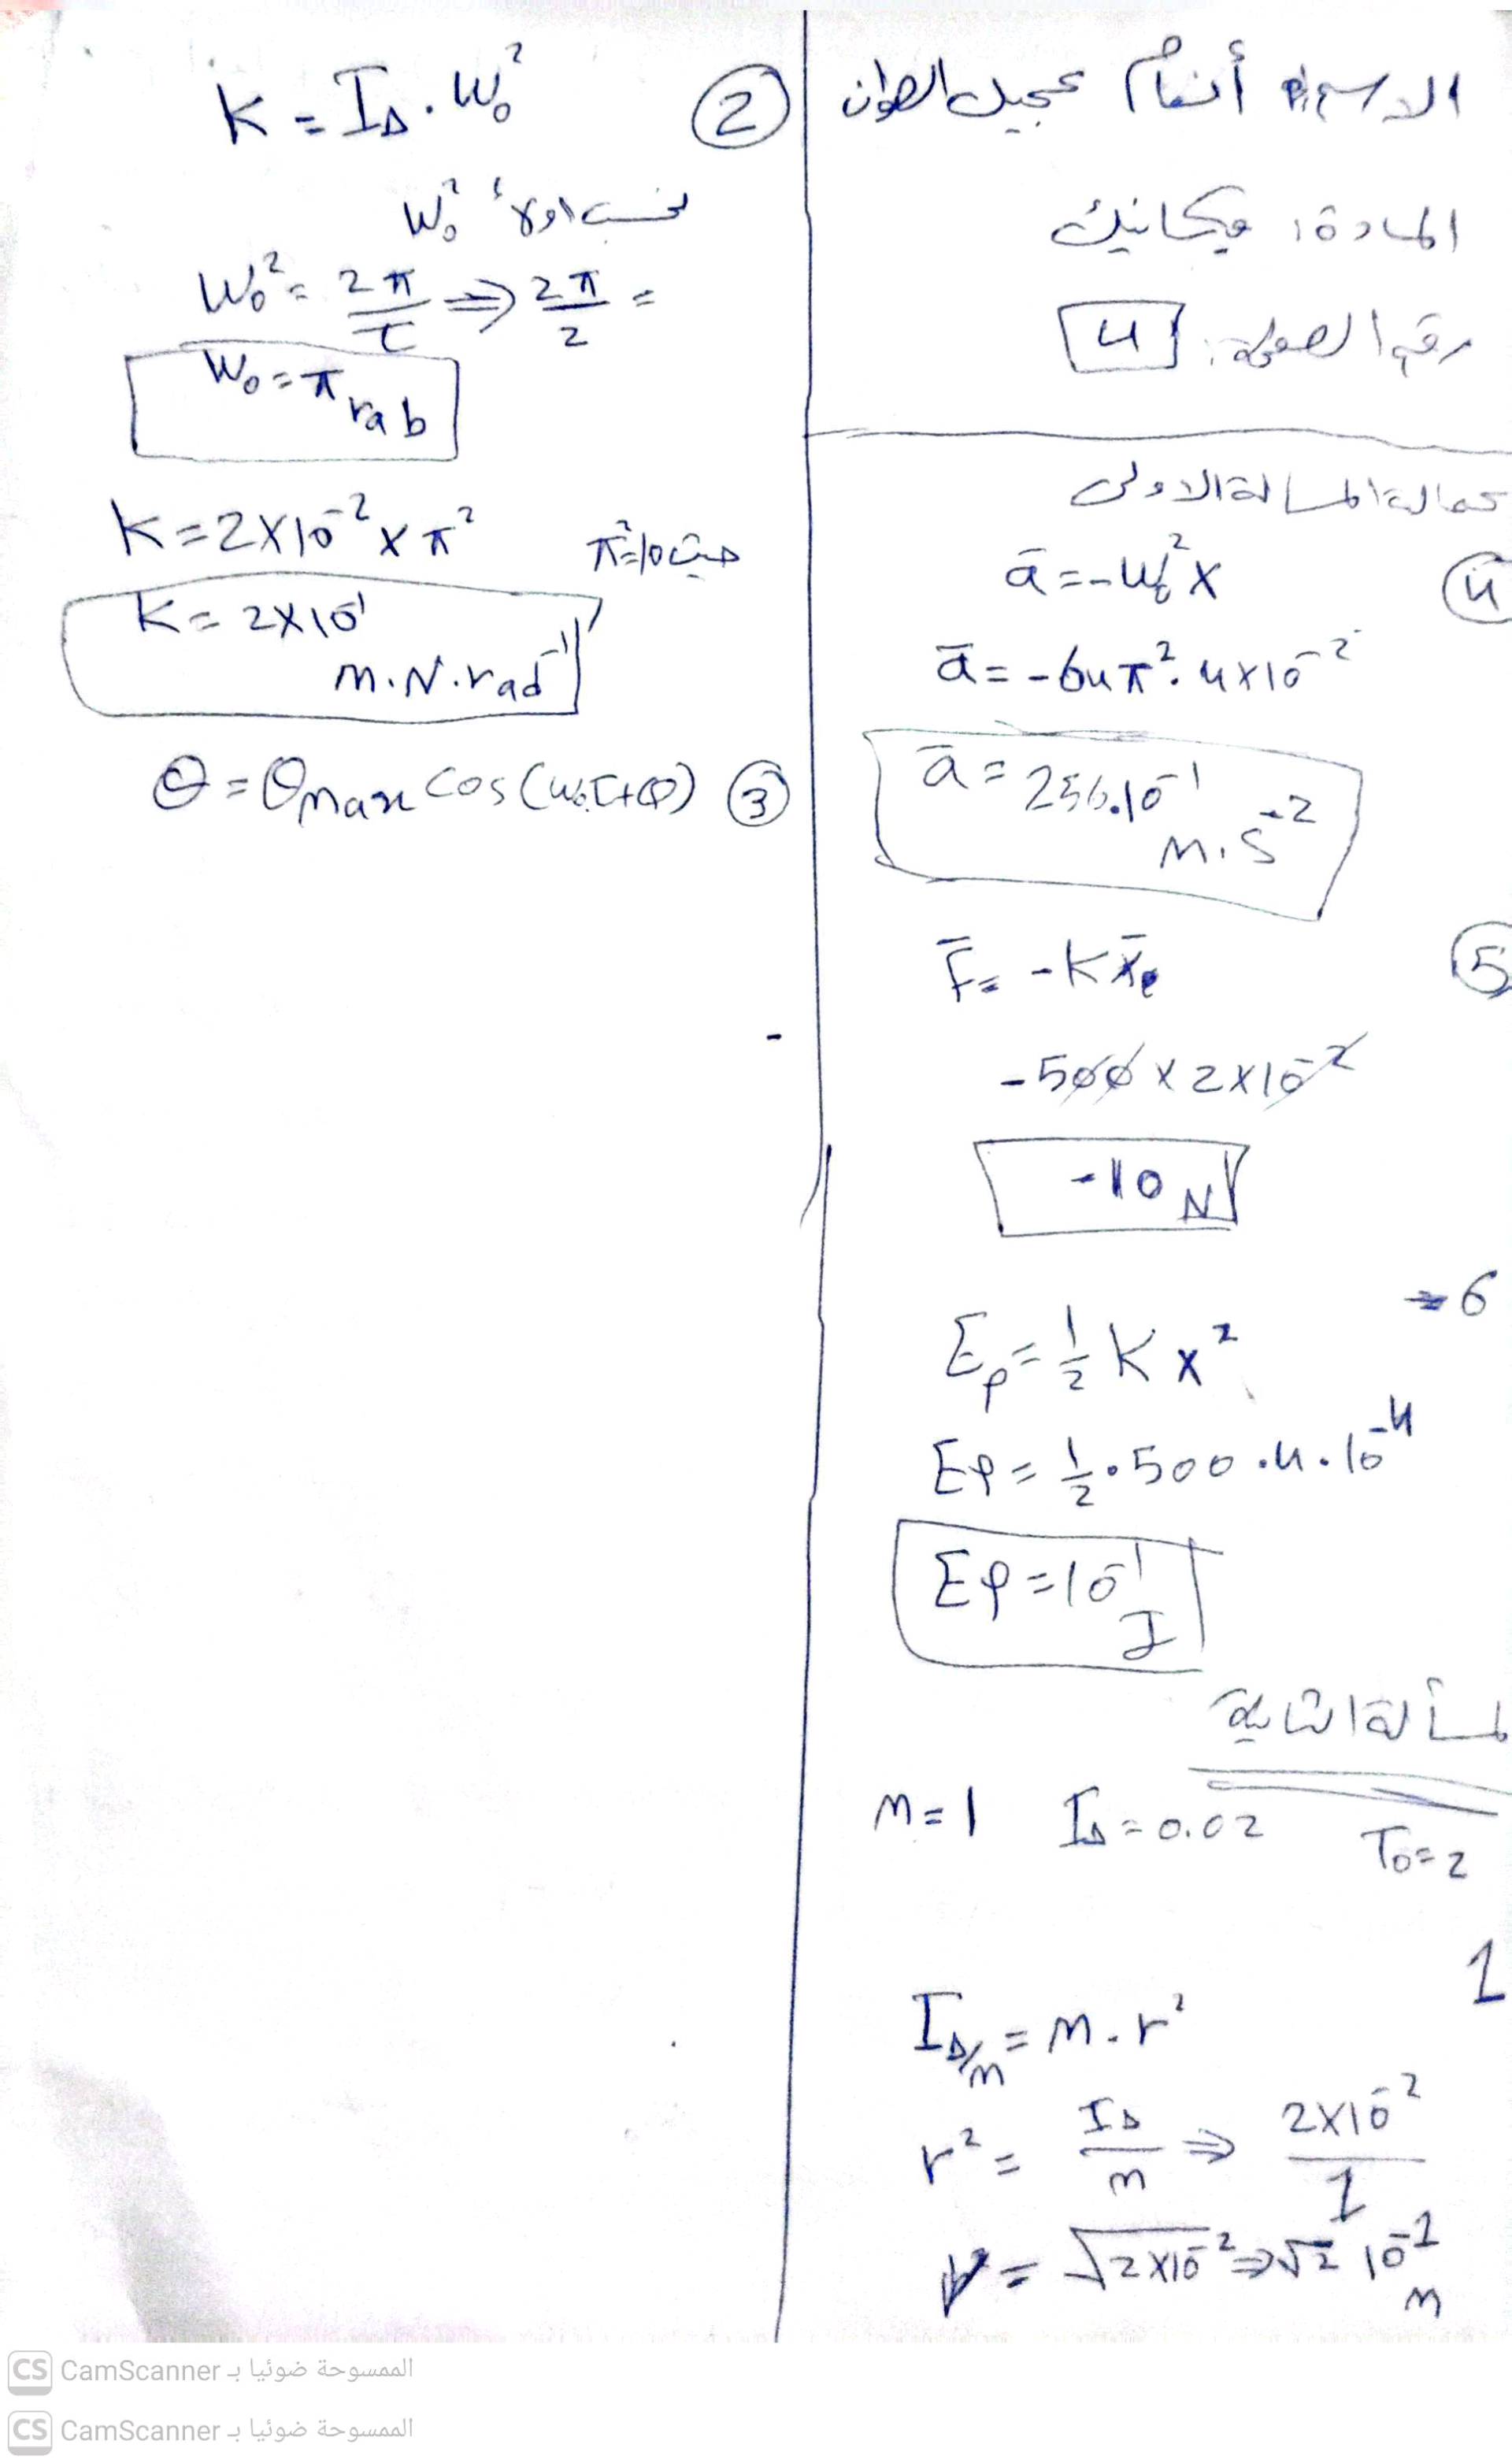 الاسم: أنغام عجيل الطوان
المادة: ميكانيك
رقم الصفحة: 4
المسالة الاولى
4
ā = -ω₀²x
ā = -64π². 4×10⁻²
ā = 256.10⁻¹
m.s⁻²
5
F̄ = -k x̄
-500 × 2×10⁻²
-10 N
6
Ep = 1/2 k x²
Ep = 1/2 . 500 . 4 . 10⁻⁴
Ep = 10⁻¹ J
المسألة الثانية
m = 1 IΔ = 0.02 T₀ = 2
1
IΔ/m = m . r²
r² = IΔ/m ⇒ 2×10⁻²/1
r = √2×10⁻² ⇒ √2 10⁻¹ m
2
k = IΔ . ω₀²
نحسب اولاً ω₀²
ω₀² = 2π/T ⇒ 2π/2 =
ω₀ = π rab
k = 2×10⁻² × π² حيث π² = 10
k = 2×10⁻¹
m.N.rad⁻¹
3 θ = θmax cos(ω₀t+φ)
CS CamScanner الممسوحة ضوئيا بـ
CS CamScanner الممسوحة ضوئيا بـ